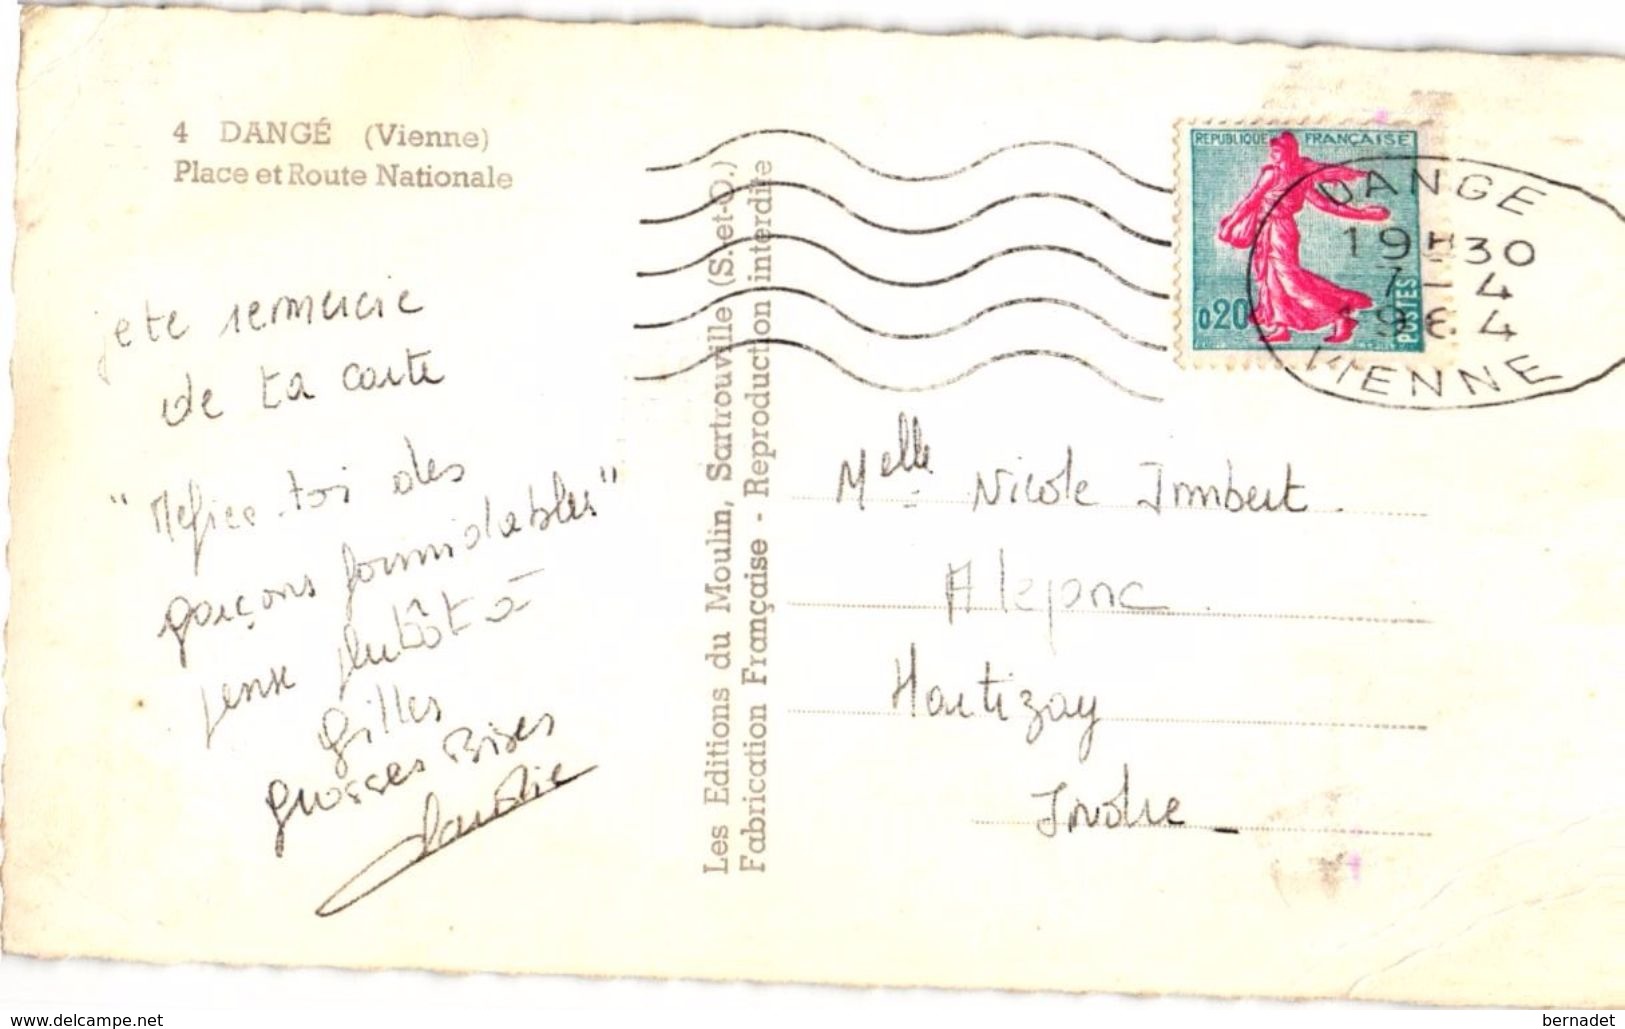 4 DANGÉ (Vienne)
Place et Route Nationale
je te remercie
de ta carte
"Mefies-toi des
garçons formidables"
pense plutôt à
Gilles
grosses Bises
Les Editions du Moulin, Sartrouville (S.-et-O.)
Fabrication Française - Reproduction interdite
REPUBLIQUE FRANÇAISE
0,20
POSTES
DANGE
19H30
7-4
1964
VIENNE
Melle Nicole Imbert.
Martizay
Indre
www.delcampe.net
bernadet